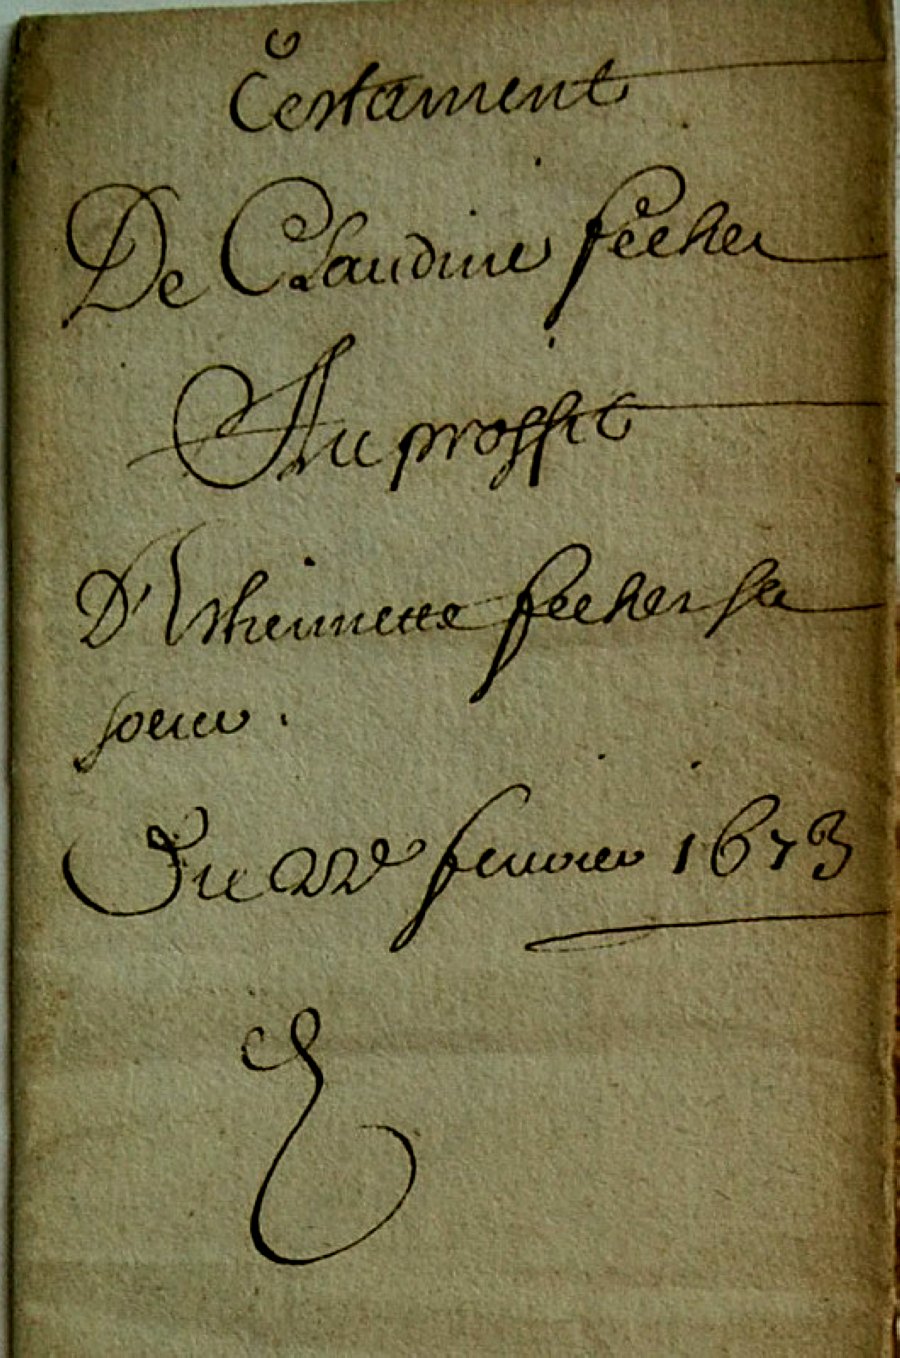 Testament
De Claudine feeher
Au proffit
D'Esthiennette feeher sa
soeur.
Du 22e feuvrier 1673